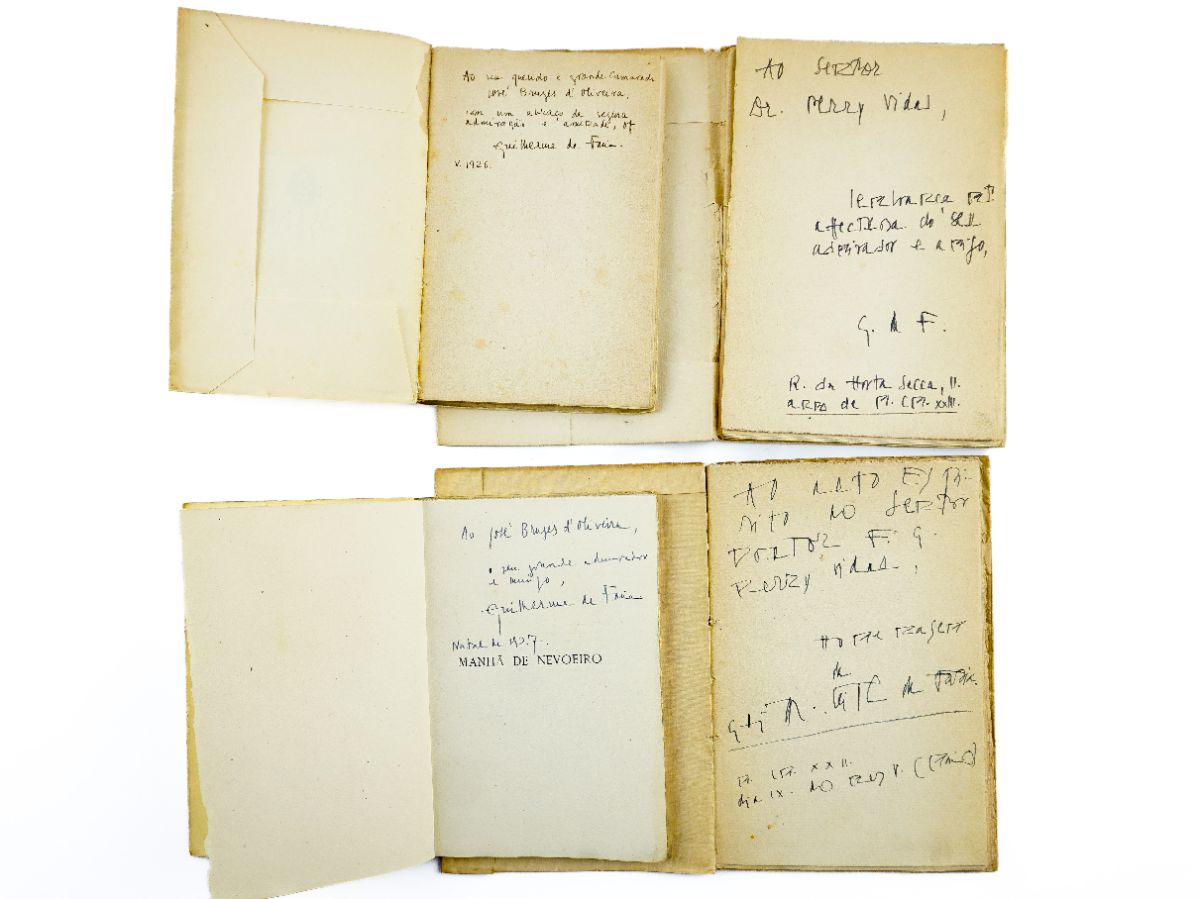 Ao seu querido e grande Camarada
José Bruges d'Oliveira,
com um abraço de segura
admiração e amizade, of
Guilherme de Faria.
V. 1926.
Ao SENHOR
Dr. PERRY Vidal,
lembrança mt.
affectuosa do seu
admirador e amigo,
G. de F.
R. da Horta Secca, 11.
anno de M. CM. XXIII.
Ao José Bruges d'Oliveira,
o seu grande admirador
e amigo,
Guilherme de Faria
Natal de 1927.
MANHÃ DE NEVOEIRO
AO ALTO ESPI-
RITO DO SENHOR
DOUTOR F. G.
PERRY Vidal,
HOMENAGEM
de
de Faria.
M. CM. XXII.
dia IX. do mez V. (Maio)